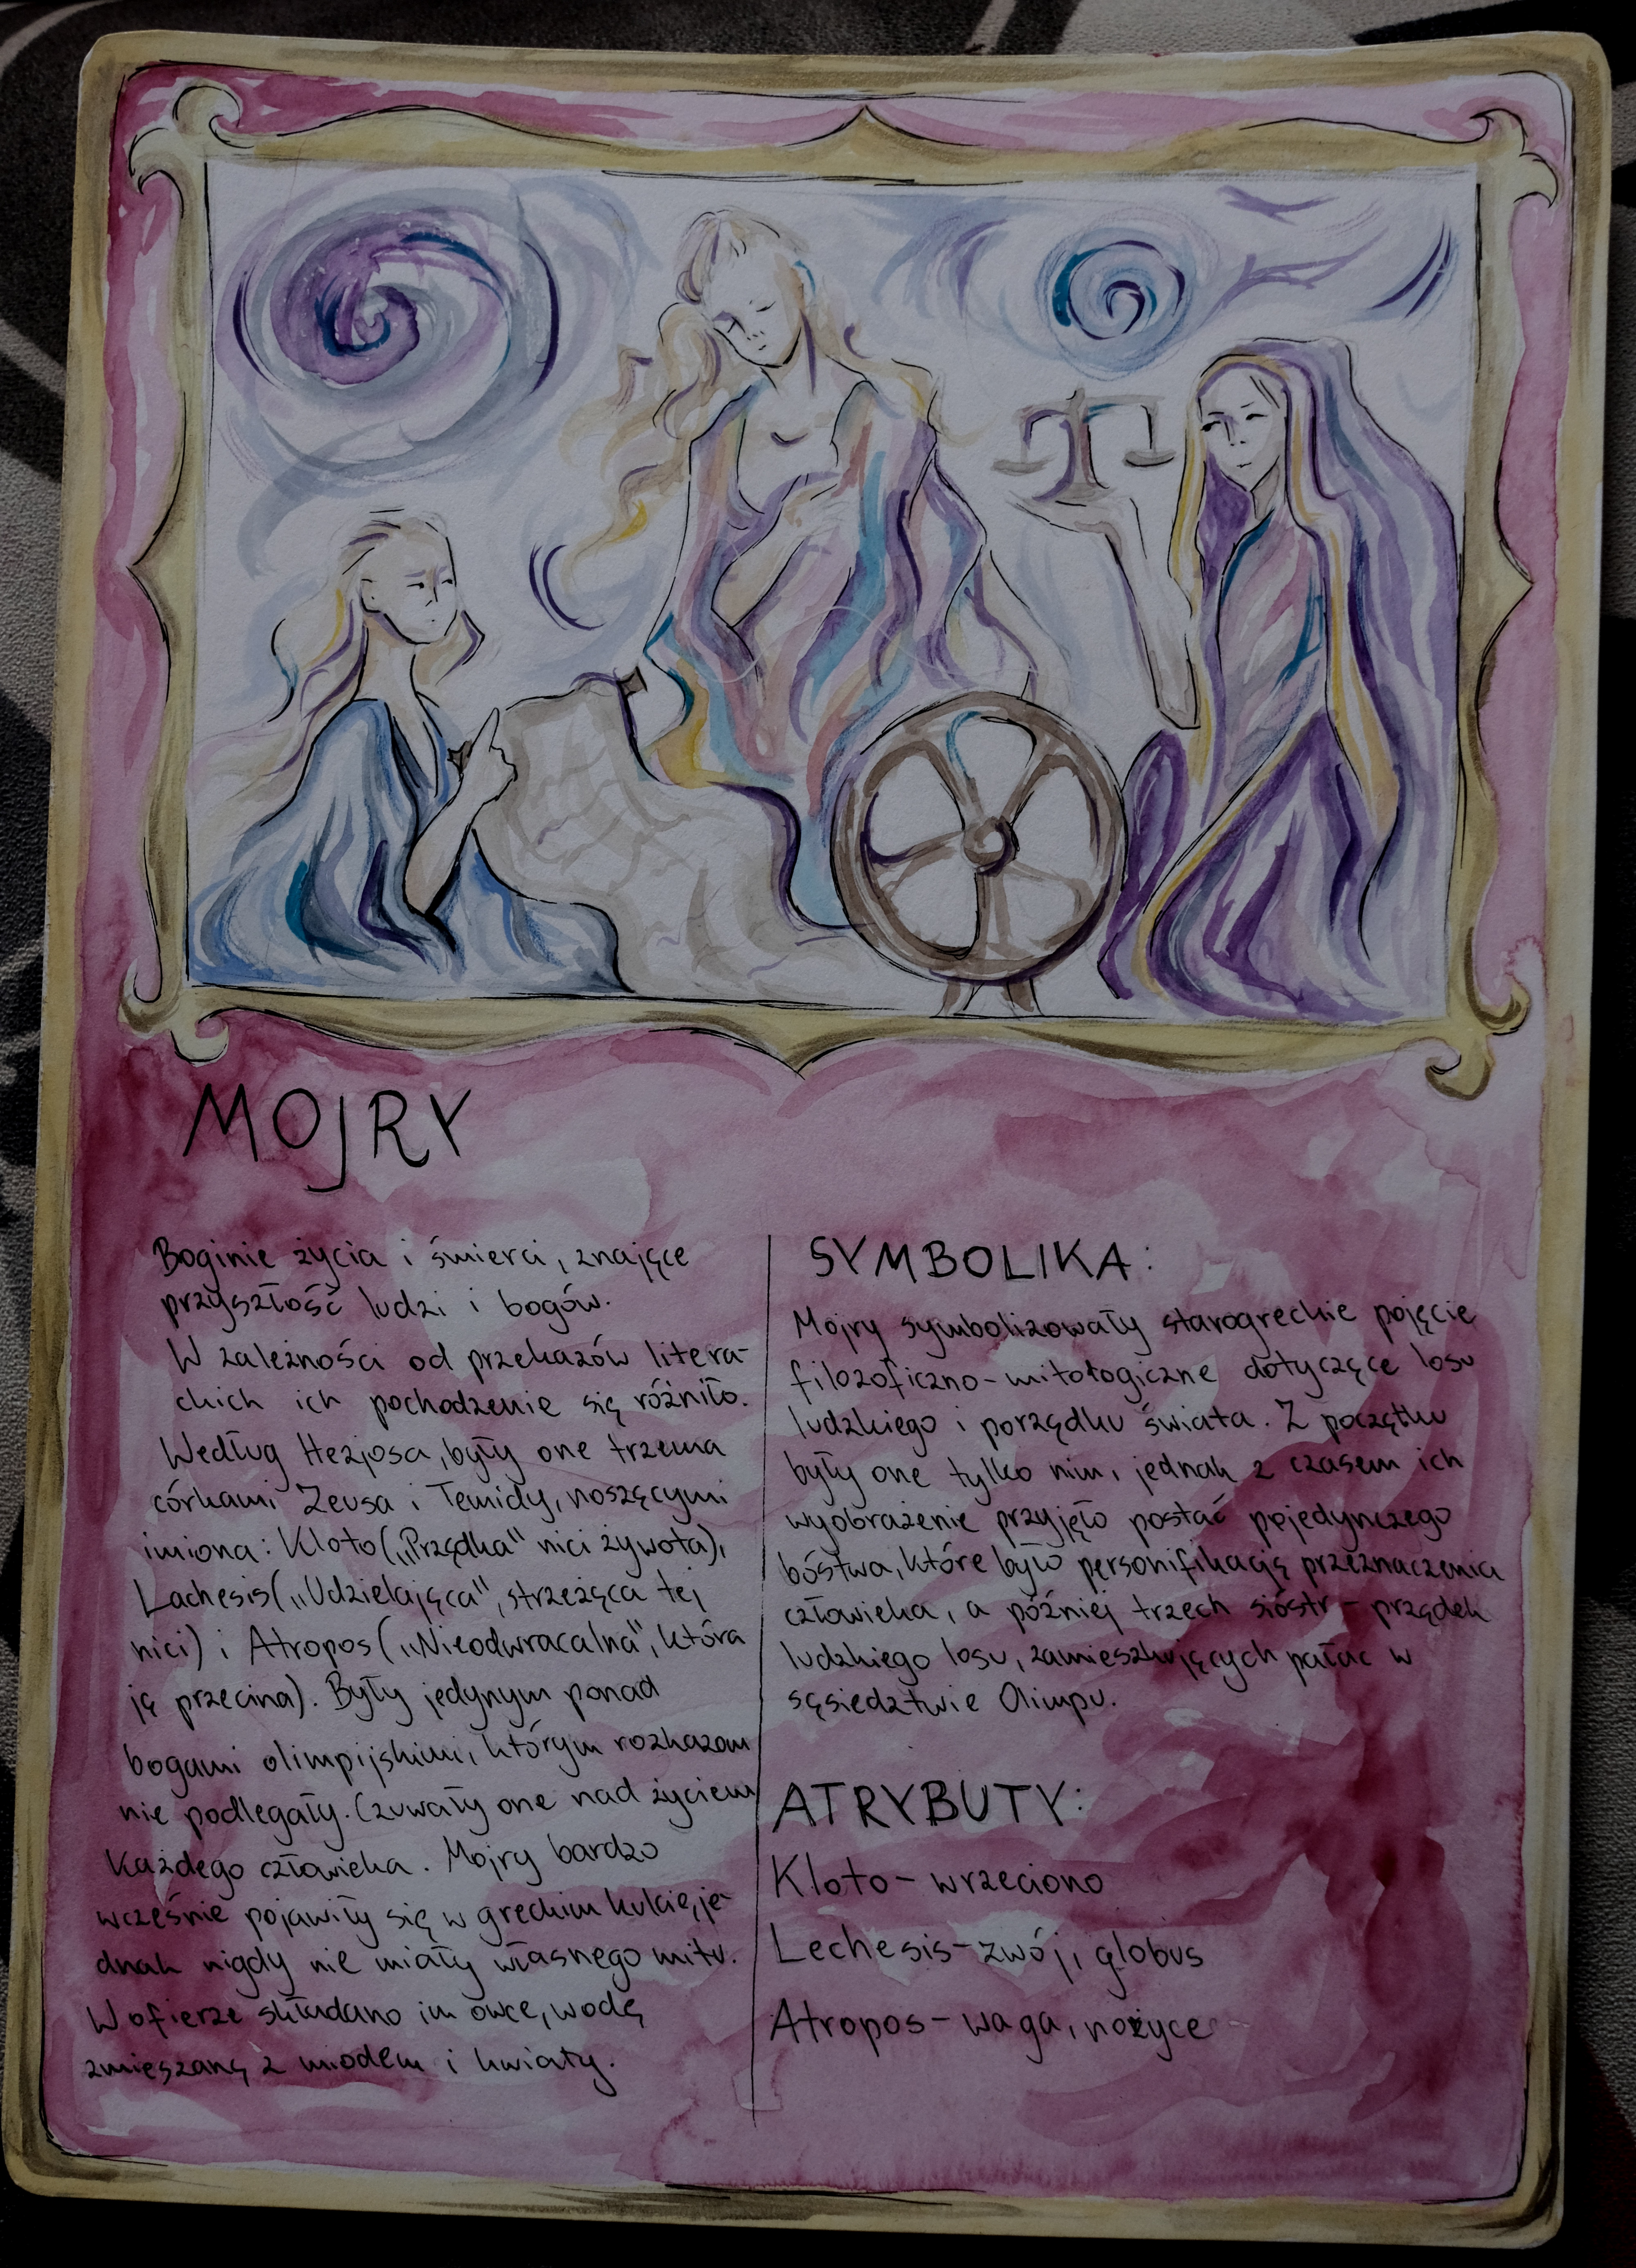 MOJRY
Boginie życia i śmierci, znające
przyszłość ludzi i bogów.
W zależności od przekazów litera-
ckich ich pochodzenie się różniło.
Według Hezjosa, były one trzema
córkami Zeusa i Temidy, noszącymi
imiona: Kloto („Prządka" nici żywota),
Lachesis („Udzielająca", strzeżąca tej
nici) i Atropos („Nieodwracalna", która
ją przecina). Były jedynym ponad
bogami olimpijskimi, którym rozkazom
nie podlegały. Czuwały one nad życiem
każdego człowieka. Mojry bardzo
wcześnie pojawiły się w greckim kulcie, je-
dnak nigdy nie miały własnego mitu.
W ofierze składano im owce, wodę
zmieszaną z miodem i kwiaty.
SYMBOLIKA:
Mojry symbolizowały starogreckie pojęcie
filozoficzno-mitologiczne dotyczące losu
ludzkiego i porządku świata. Z początku
były one tylko nim, jednak z czasem ich
wyobrażenie przyjęło postać pojedynczego
bóstwa, które było personifikacją przeznaczenia
człowieka, a później trzech sióstr - prządek
ludzkiego losu, zamieszkujących pałac w
sąsiedztwie Olimpu.
ATRYBUTY:
Kloto - wrzeciono
Lechesis - zwój, globus
Atropos - waga, nożyce